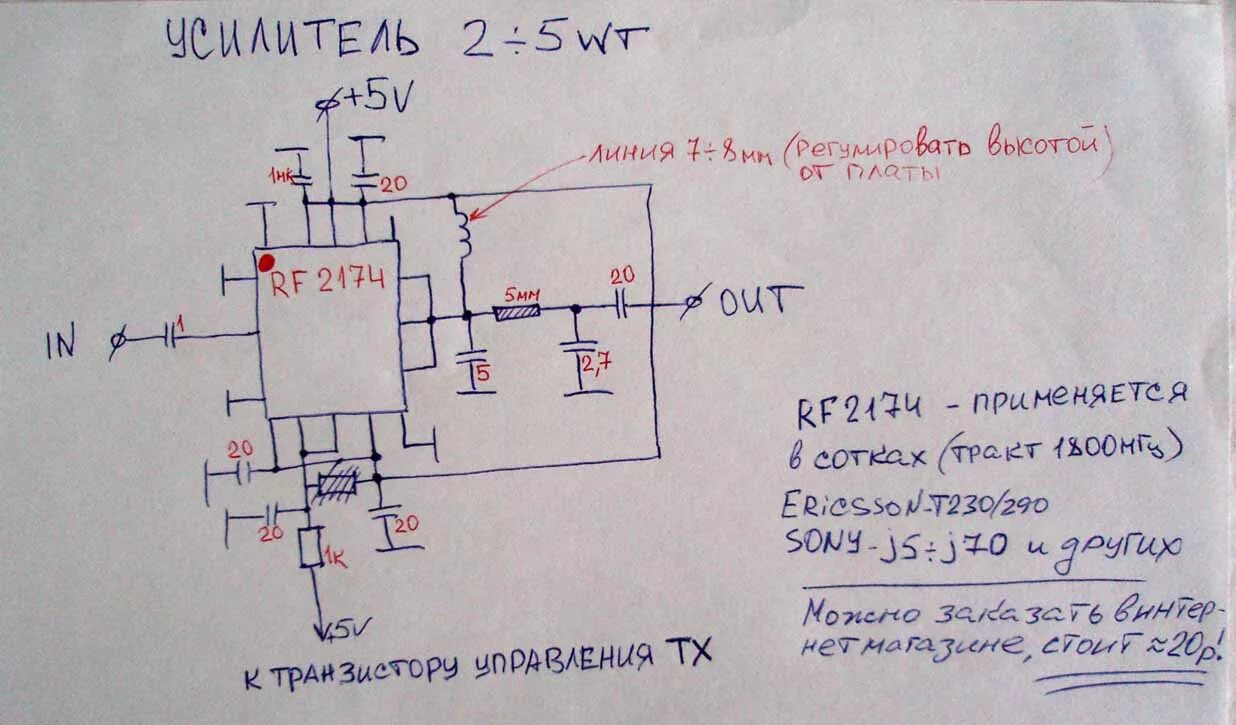 УСИЛИТЕЛЬ 2÷5WT
+5V
1мк
20
ЛИНИЯ 7÷8мм (РЕГУЛИРОВАТЬ ВЫСОТОЙ)
ОТ ПЛАТЫ
RF 2174
IN
1
5мм
20
OUT
5
2,7
20
20
20
1к
+5V
К ТРАНЗИСТОРУ УПРАВЛЕНИЯ TX
RF2174 - ПРИМЕНЯЕТСЯ
В СОТКАХ (ТРАКТ 1800МГЦ)
ERICSSON-T230/290
SONY-j5÷j70 и других
Можно заказать в интер-
нетмагазине, стоит ≈20р!